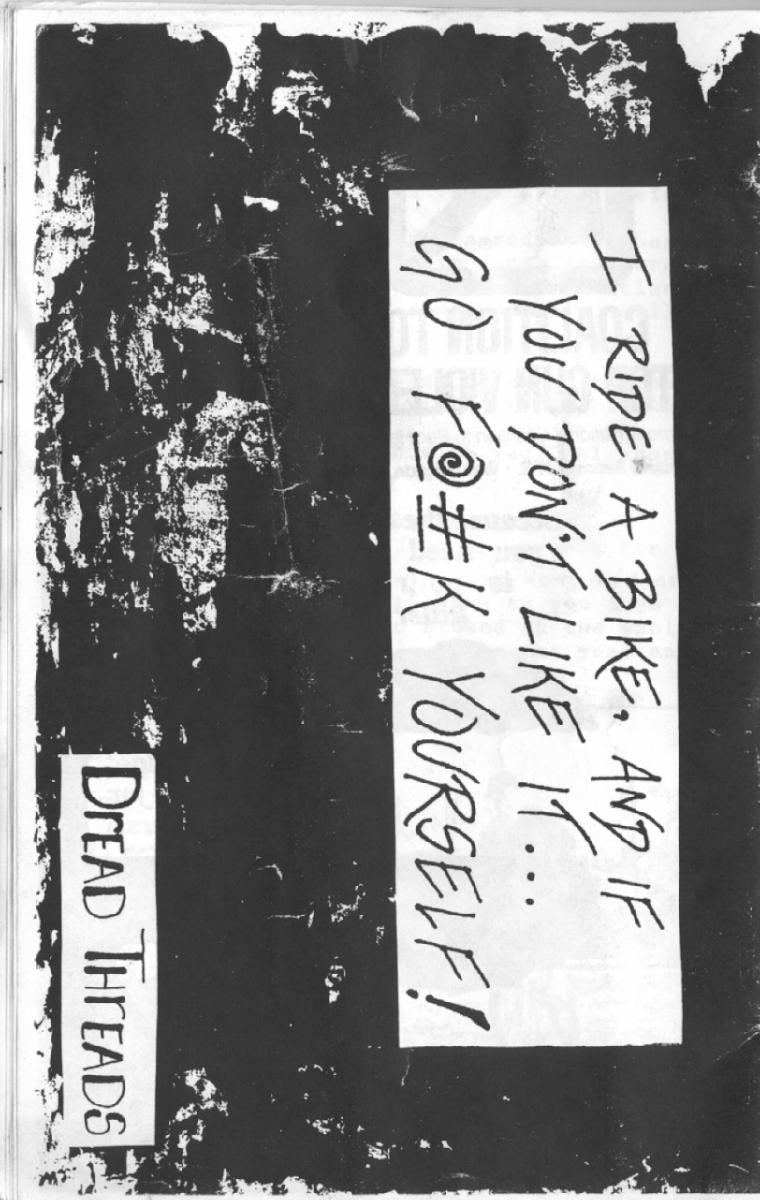 I RIDE A BIKE, AND IF
YOU DON'T LIKE IT...
GO F@#K YOURSELF!
DrEAD THrEADS